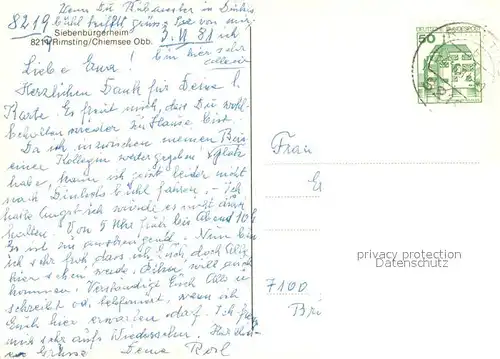 Wenn Du
8219 bühl triffst grüsse Sie von mir
Siebenbürgerheim
3. VI 81 ich
8219 Rimsting/Chiemsee Obb.
bin hier sehr
allein
Liebe Erna!
Herzlichen Dank für Deine l.
Karte. Es freut mich, dass Du wohl-
behalten wieder zu Hause bist.
Da ich inzwischen meinen
einer Kollegin weitergegeben
habe, kann ich jetzt leider nicht
nach Dinkelsbühl fahren. - Ich
hatte Angst ich würde es nicht
halten. Von 5 Uhr früh bis Abend 10 h
Es ist zu anstrengend. Nun bin
ich sehr froh dass ich Euch doch Alle
hier sehen werde. will auch
kommen. Verständige Euch Alle
schreibt od. telefoniert, wann ich
Euch hier erwarten darf. Ich freu
mich sehr aufs Wiedersehen. Herzlichst
Grüsse Deine Rosl
50
DEUTSCHE BUNDESPOST
Frau
7100
privacy protection
Datenschutz